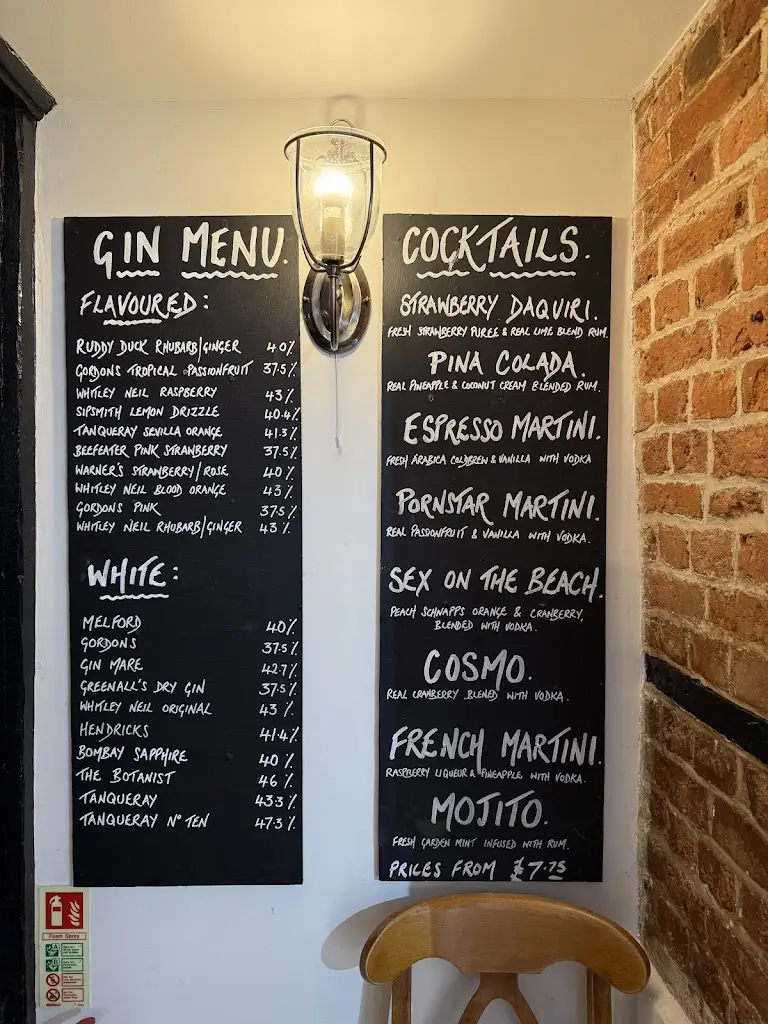 GIN MENU.
FLAVOURED:
RUDDY DUCK RHUBARB/GINGER 40%
GORDONS TROPICAL PASSIONFRUIT 37.5%
WHITLEY NEIL RASPBERRY 43%
SIPSMITH LEMON DRIZZLE 40.4%
TANQUERAY SEVILLA ORANGE 41.3%
BEEFEATER PINK STRAWBERRY 37.5%
WARNER'S STRAWBERRY/ROSE 40%
WHITLEY NEIL BLOOD ORANGE 43%
GORDONS PINK 37.5%
WHITLEY NEIL RHUBARB/GINGER 43%
WHITE:
MELFORD 40%
GORDONS 37.5%
GIN MARE 42.7%
GREENALL'S DRY GIN 37.5%
WHITLEY NEIL ORIGINAL 43%
HENDRICKS 41.4%
BOMBAY SAPPHIRE 40%
THE BOTANIST 46%
TANQUERAY 43.3%
TANQUERAY Nº TEN 47.3%
COCKTAILS.
STRAWBERRY DAQUIRI.
FRESH STRAWBERRY PUREE & REAL LIME BLEND RUM.
PINA COLADA.
REAL PINEAPPLE & COCONUT CREAM BLENDED RUM.
ESPRESSO MARTINI.
FRESH ARABICA COLDBREW & VANILLA WITH VODKA
PORNSTAR MARTINI.
REAL PASSIONFRUIT & VANILLA WITH VODKA.
SEX ON THE BEACH.
PEACH SCHNAPPS ORANGE & CRANBERRY,
BLENDED WITH VODKA.
COSMO.
REAL CRANBERRY BLENED WITH VODKA.
FRENCH MARTINI.
RASPBERRY LIQUEUR & PINEAPPLE WITH VODKA.
MOJITO.
FRESH GARDEN MINT INFUSED WITH RUM.
PRICES FROM £7.75
Foam Spray